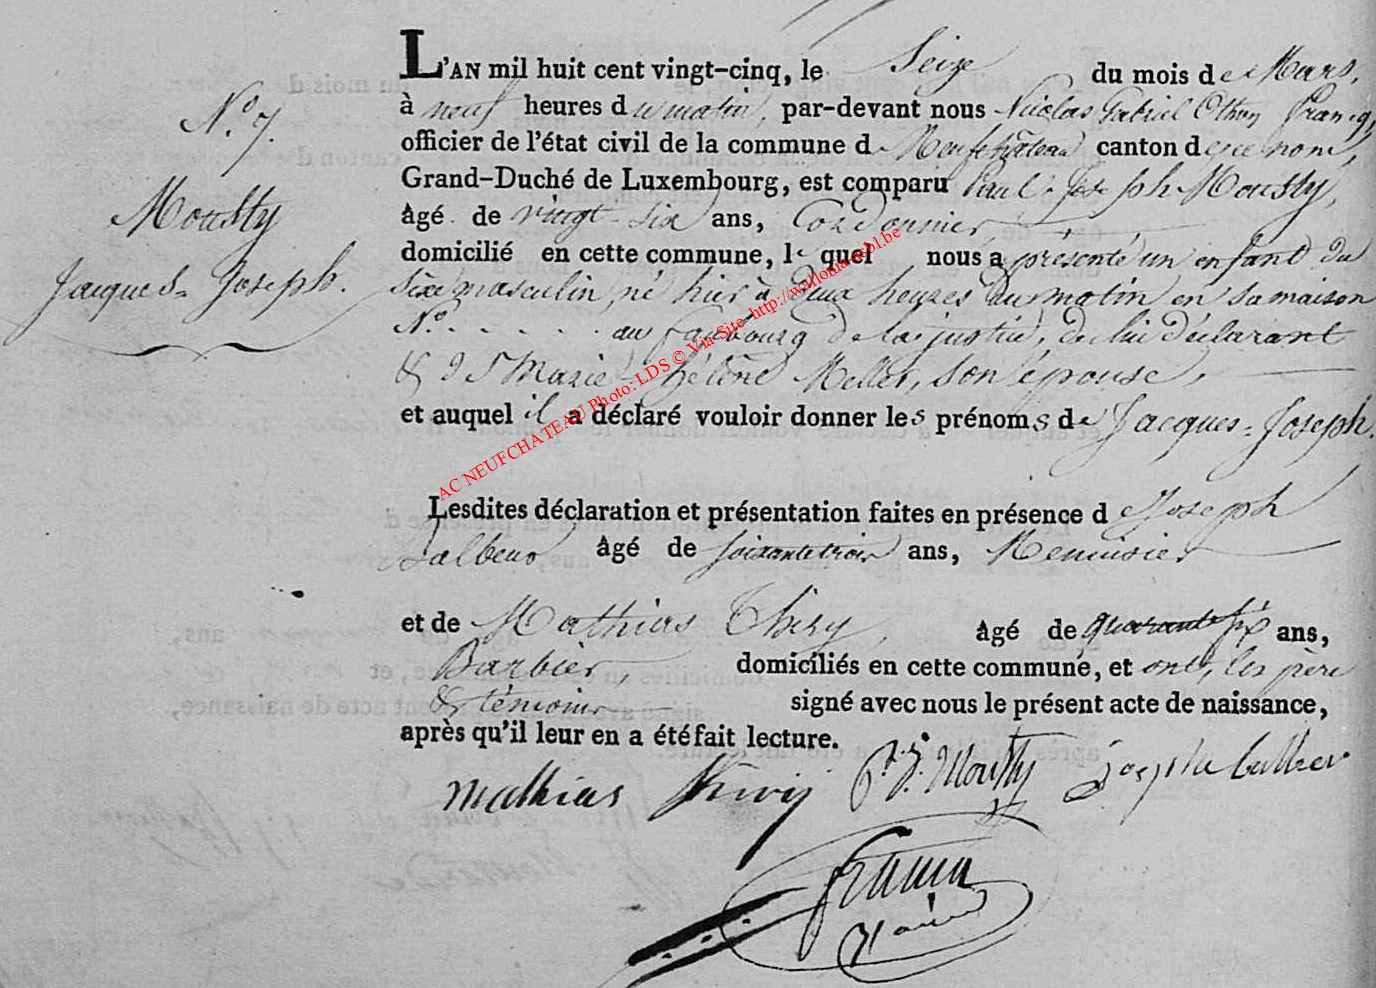 N.º 7.
Mousty
Jacques-Joseph.
L'AN mil huit cent vingt-cinq, le Seize du mois de Mars,
à neuf heures du matin, par-devant nous Nicolas Gabriel Othon Francq,
officier de l'état civil de la commune de Neufchâteau canton de ce nom,
Grand-Duché de Luxembourg, est comparu Paul-Joseph Mousty,
âgé de vingt-six ans, Cordonnier,
domicilié en cette commune, le quel nous a présenté un enfant du
sexe masculin, né hier à deux heures du matin en sa maison
N.º . . . . . . au faubourg de la justice, de lui déclarant
& de Marie-hélène Meller, son épouse,
et auquel il a déclaré vouloir donner les prénoms de Jacques-Joseph.
Lesdites déclaration et présentation faites en présence de Joseph
âgé de soixante trois ans, Menuisier
et de Mathias Thiry, âgé de quarante six ans,
Barbier, domiciliés en cette commune, et ont, les père
& témoins signé avec nous le présent acte de naissance,
après qu'il leur en a été fait lecture.
mathias P. J. Mousty Joseph
AC NEUFCHATEAU Photo: LDS © Via Site - http://wallonia-asbl.be